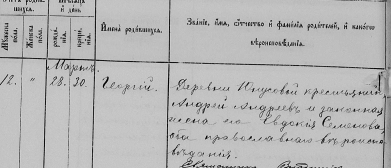 Мужеска пола.
Женска пола.
рожде-
нія.
креще-
нія.
и день.
Имена родившихся.
Званіе, имя, отчество и фамилія родителей, и какого
вѣроисповѣданія.
Мартъ
12. " 28. 30. Георгій. Деревни крестьянинъ
Андрей Андреевъ и законная
жена его Евдокія Семенова
оба православнаго вѣроиспо-
вѣданія.